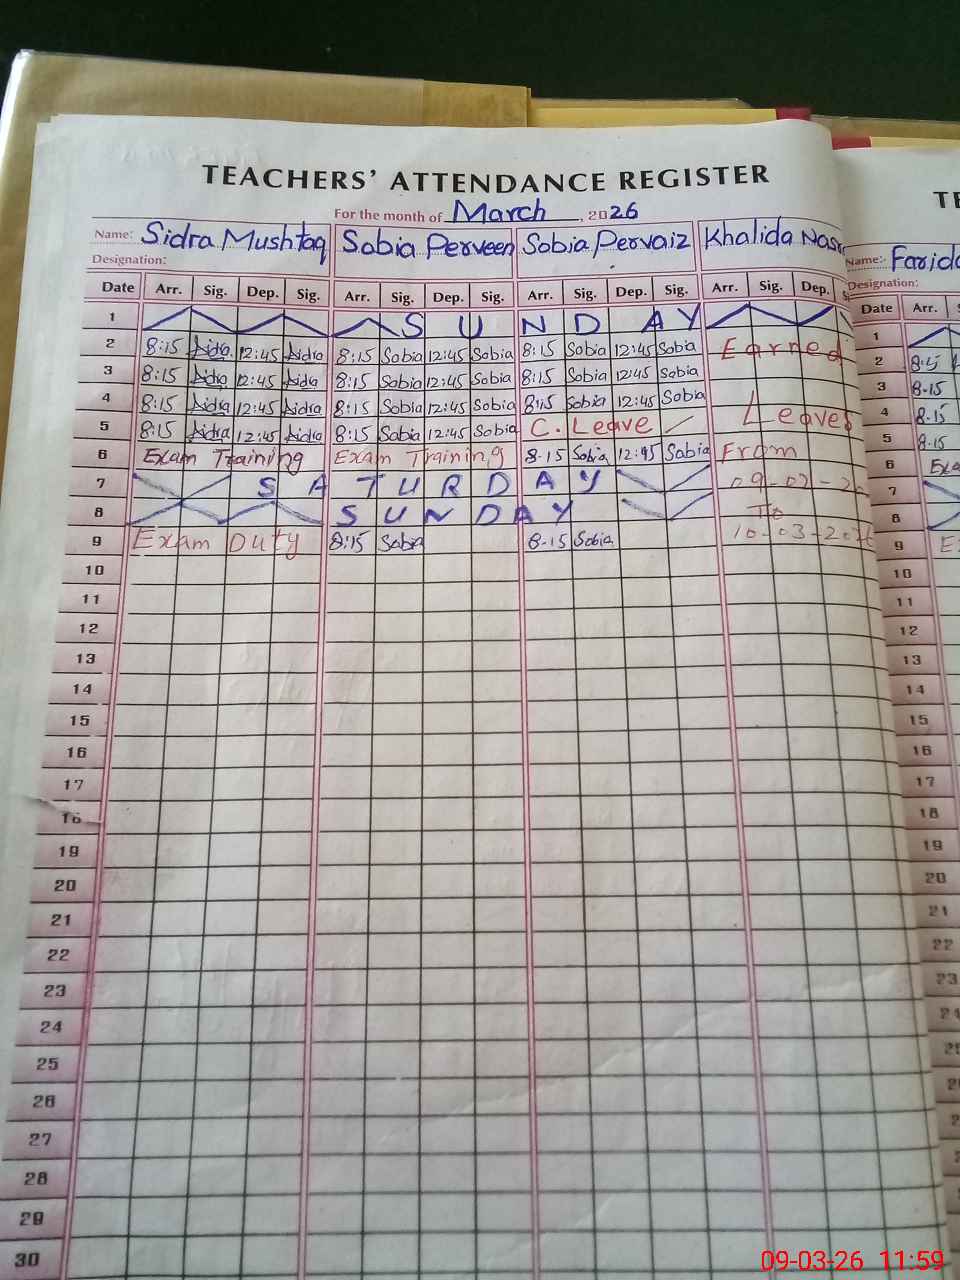 TEACHERS' ATTENDANCE REGISTER
For the month of March, 2026
Name: Sidra Mushtaq Sobia Perveen Sobia Pervaiz Khalida
Designation:
Date Arr. Sig. Dep. Sig. Arr. Sig. Dep. Sig. Arr. Sig. Dep. Sig. Arr. Sig. Dep.
1 SUNDAY
2 8:15 Sidra 12:45 Sidra 8:15 Sobia 12:45 Sobia 8:15 Sobia 12:45 Sobia Earned
3 8:15 Sidra 12:45 Sidra 8:15 Sobia 12:45 Sobia 8:15 Sobia 12:45 Sobia
4 8:15 Sidra 12:45 Sidra 8:15 Sobia 12:45 Sobia 8:15 Sobia 12:45 Sobia Leaves
5 8:15 Sidra 12:45 Sidra 8:15 Sobia 12:45 Sobia C. Leave
6 Exam Training Exam Training 8-15 Sobia 12:45 Sobia From
7 SATURDAY
8 SUNDAY To
9 Exam Duty 8:15 Sobia 8-15 Sobia 10-03-2026
10
11
12
13
14
15
16
17
18
19
20
21
22
23
24
25
26
27
28
29
30
Name:- Farida
Designation:
Date Arr.
1
2 8:15
3 8-15
4 8-15
5 8-15
6
7
8
9
10
11
12
13
14
15
16
17
18
19
20
21
22
23
09-03-26 11:59